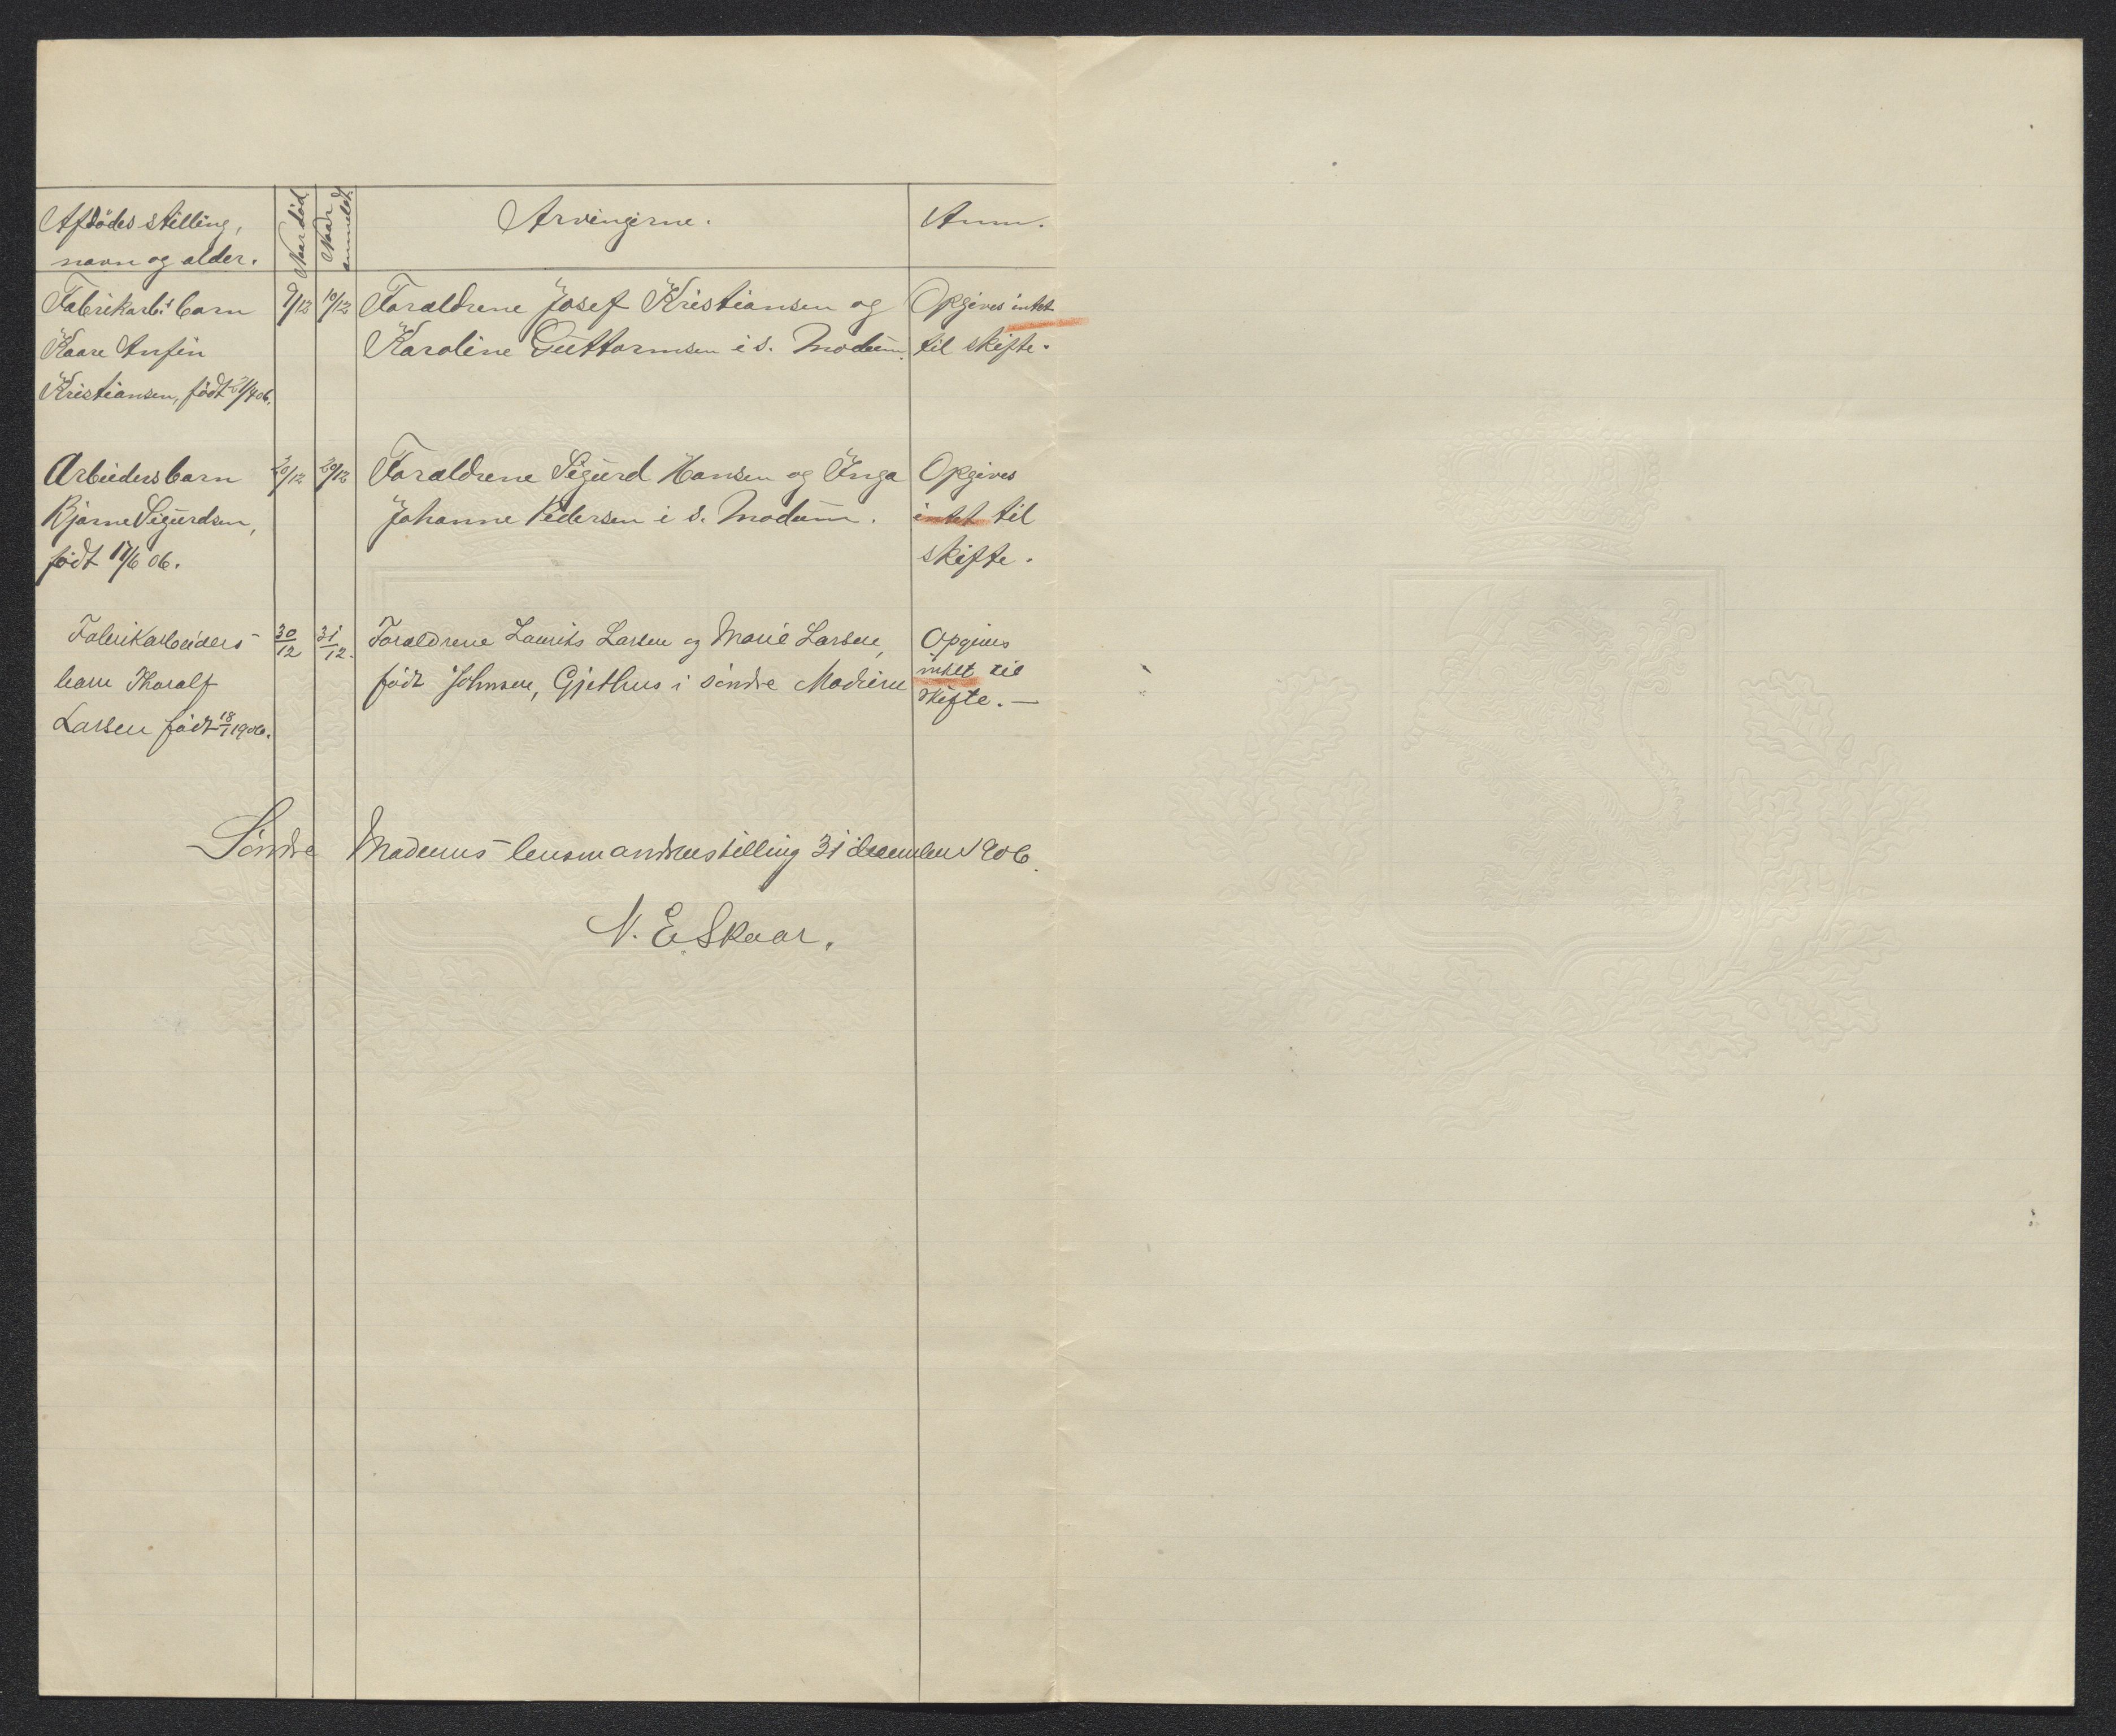 Afdødes stilling,
navn og alder.
Naar død
Naar
anmeldt.
Arvingerne.
Anm.
Fabrikarb:s barn
Kaare Anfin
Kristiansen, født 21/4 06.
9/12
10/12
Forældrene Josef Kristiansen og
Karoline Guttormsen i s. Modum.
Opgives intet
til skifte.
Arbeiders barn
Bjarne Sigurdsen,
født 17/6 06.
20/12
20/12
Forældrene Sigurd Hansen og Inga
Johanne Pedersen i s. Modum.
Opgives
intet til
skifte.
Fabrikarbeiders
barn Thoralf
Larsen født 18/1 1906.
30/12
31/12.
Forældrene Laurits Larsen og Marie Larsen,
født Johnsen, Gjethus i søndre Modum
Opgives
intet til
skifte. —
Søndre Modums lensmandsbestilling 31 december 1906.
N. E. Skaar.